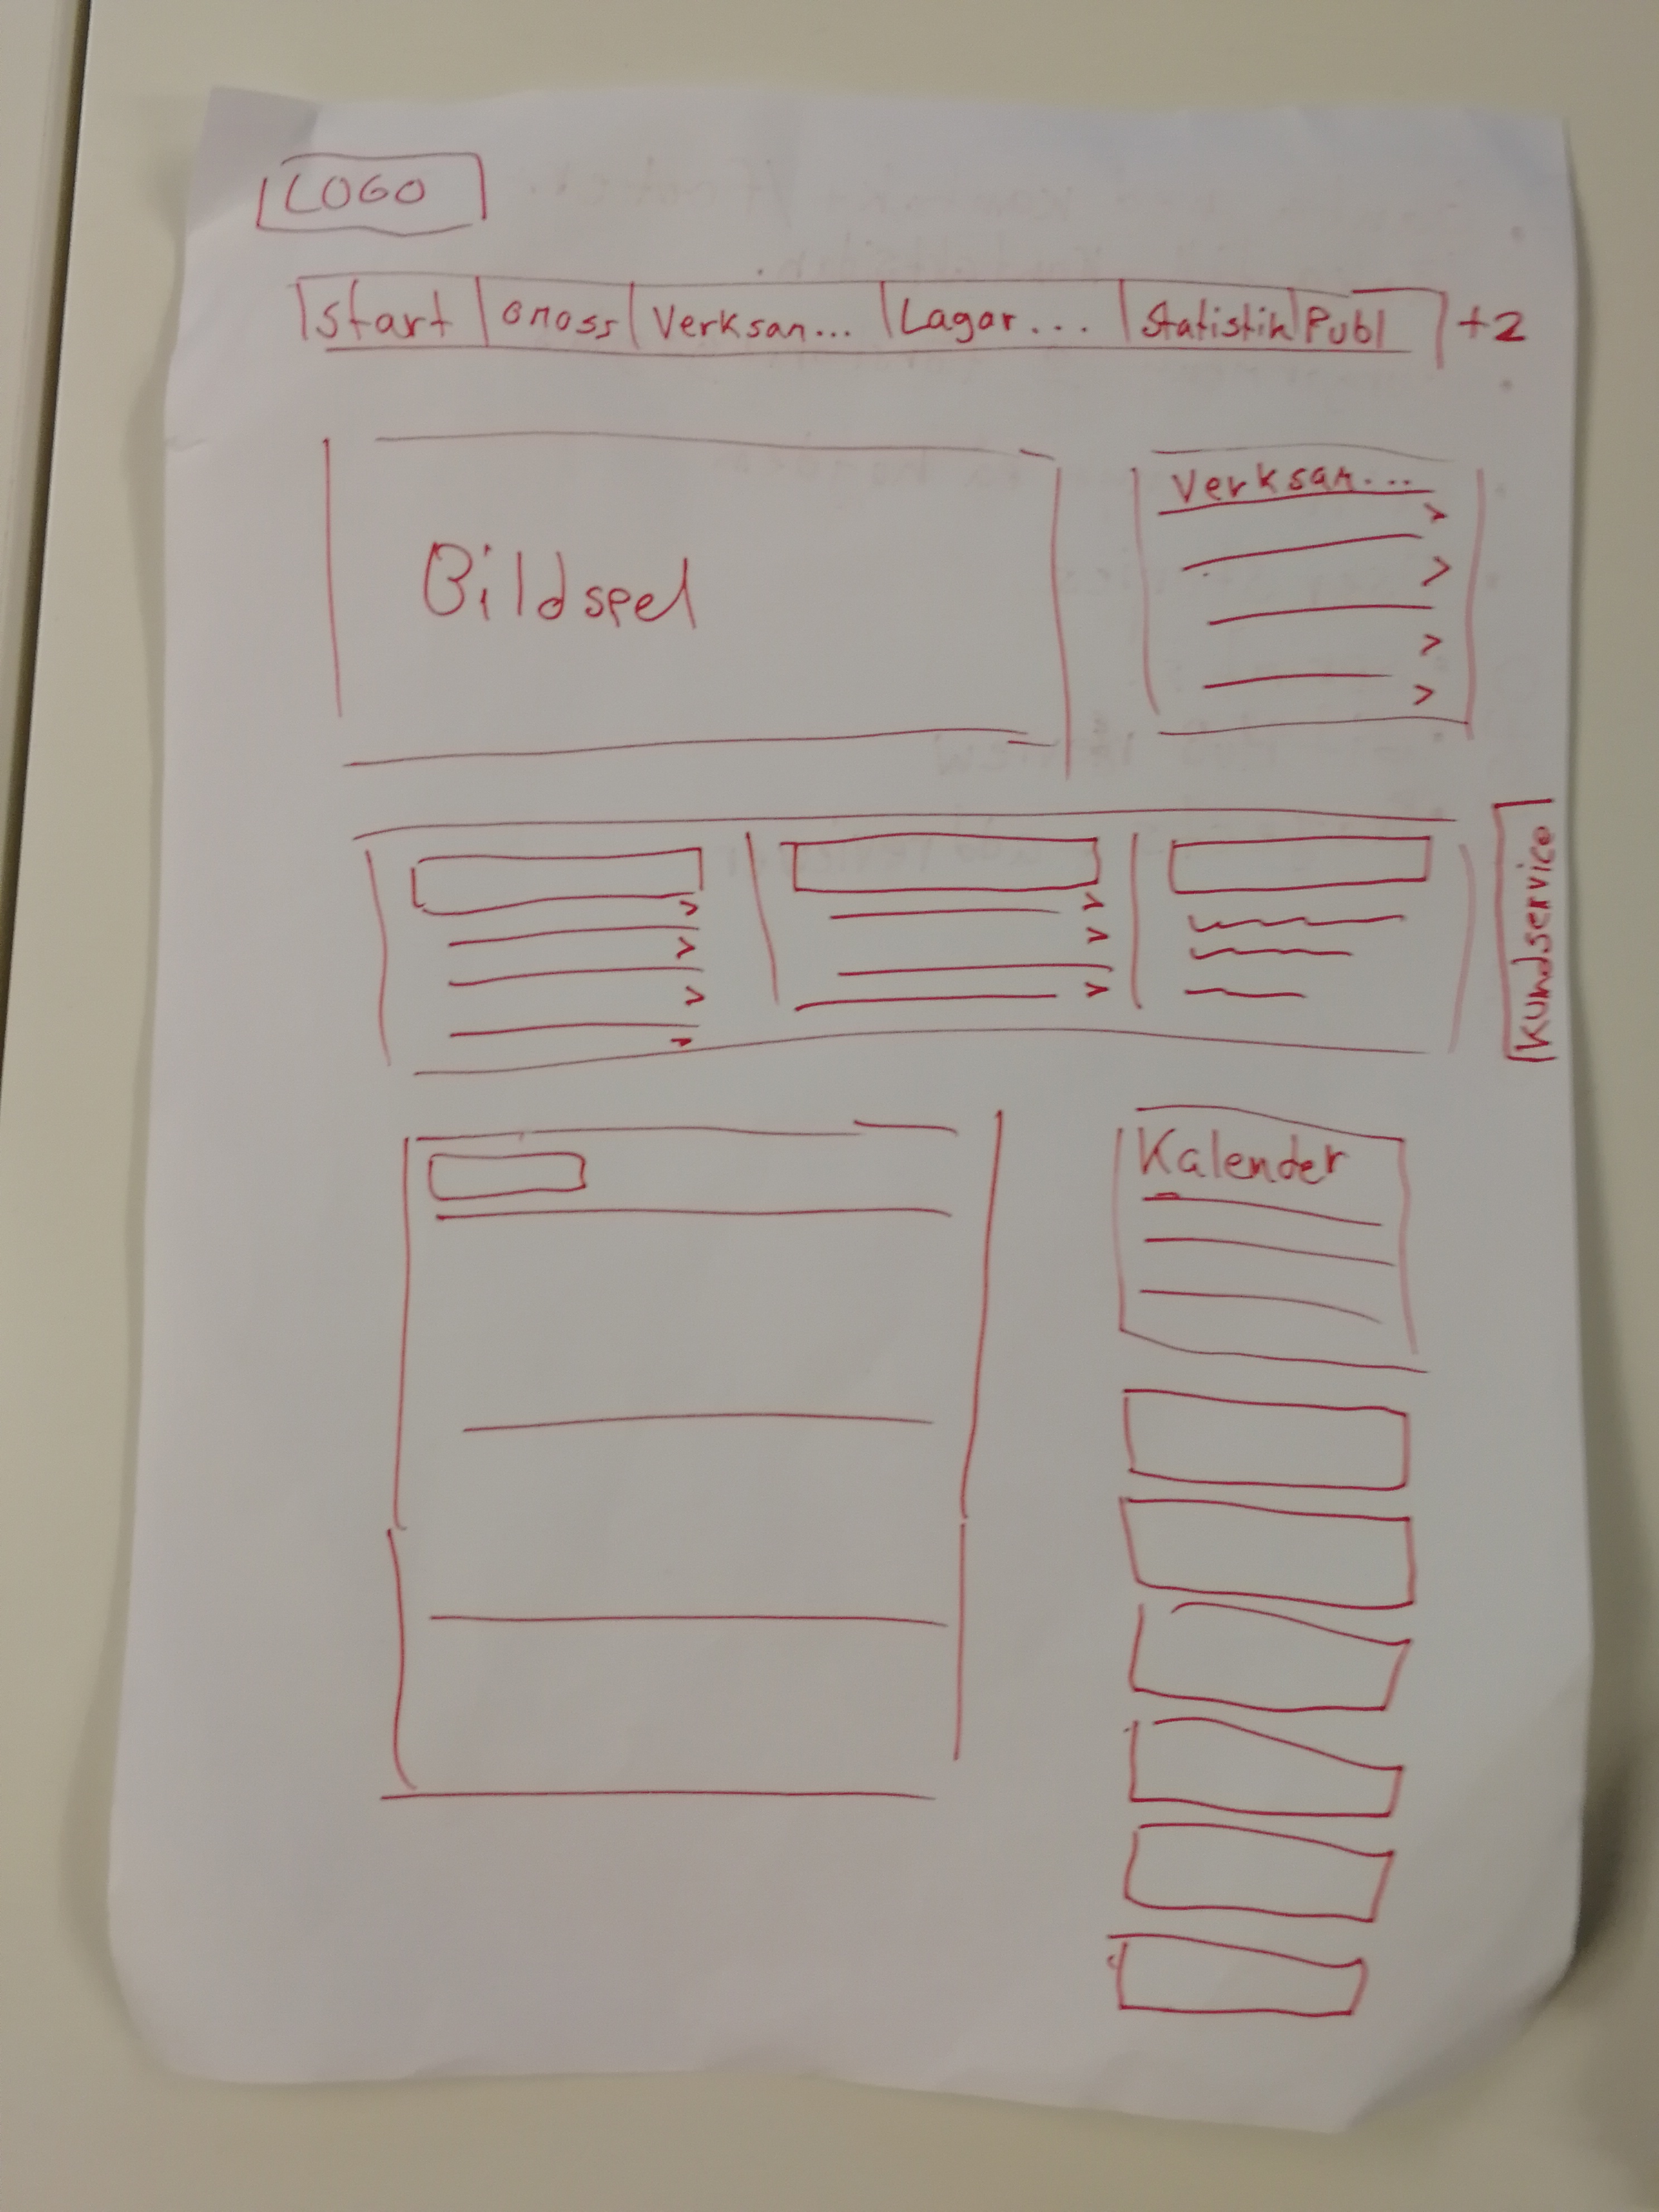 LOGO
Start omoss Verksam... Lagar... Statistik Publ +2
Verksam...
Bildspel
Kundservice
Kalender